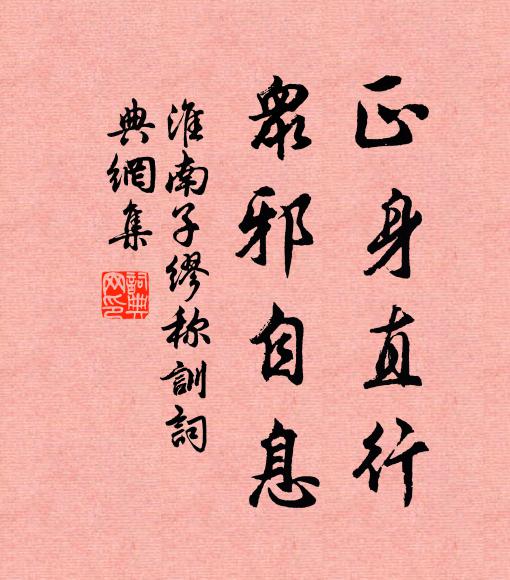 正身直行
眾邪自息
淮南子繆称訓詞
典網集
詞典
网印